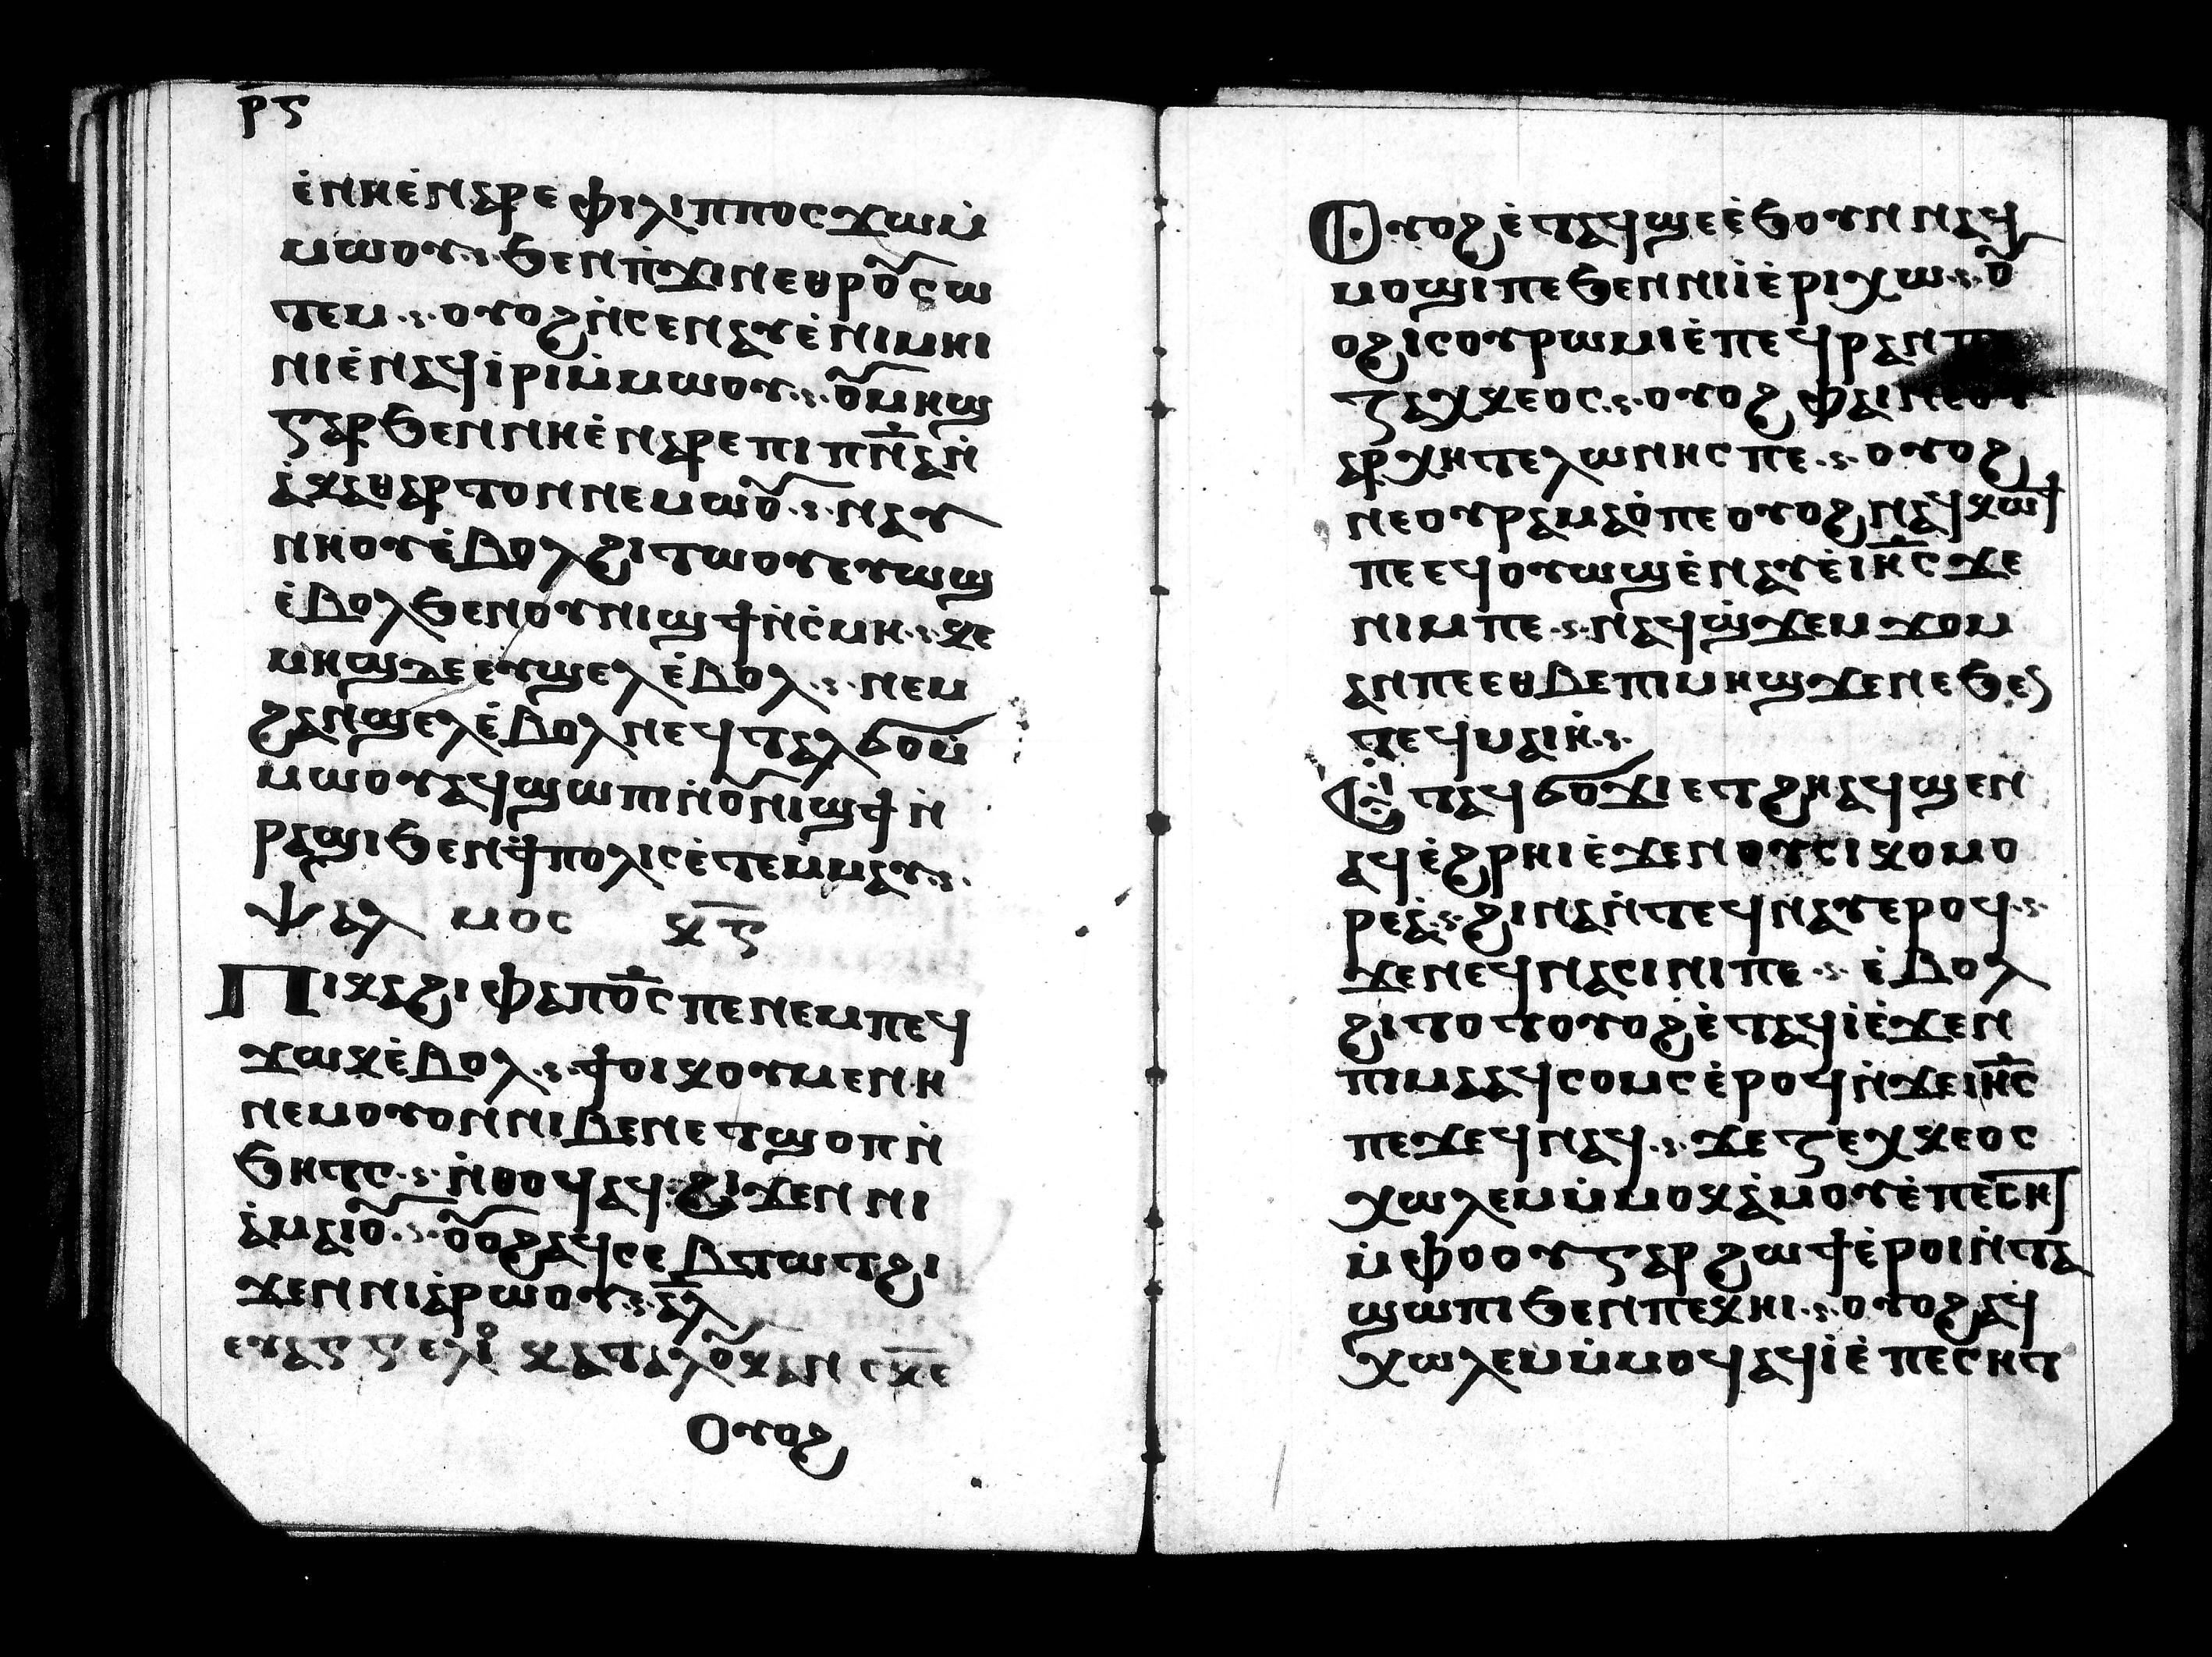 ⲣ̅ⲋ
ⲉ̀ⲛⲏⲉ̀ⲛⲁⲣⲉ ⲫⲓⲗⲓⲡⲡⲟⲥ ϫⲱⲙ̀
ⲙⲱⲟⲩ·ⲋ· ϧⲉⲛⲡ̀ϫⲓⲛⲉⲑⲣⲟⲩ̅ⲥⲱ
ⲧⲉⲙ·ⲋ· ⲟⲩⲟϩ ⲛ̀ⲥⲉⲛⲁⲩⲉ̀ⲛⲓⲙⲏⲓ
ⲛⲓⲉ̀ⲛⲁϥⲓ̀ⲣⲓⲙ̀ⲙⲱⲟⲩ·ⲋ· ⲟⲩ̅ⲙⲏϣ
ⲅⲁⲣ ϧⲉⲛⲛⲏⲉ̀ⲛⲁⲣⲉ ⲡⲓ ⲡ̅ⲛ̅ⲁ̅ⲛ̀
ⲁ̀ⲕⲁⲑⲁⲣⲧⲟⲛ ⲛⲉⲙⲱⲟⲩ̅·ⲋ· ⲛⲁⲩ
ⲛⲏⲟⲩⲉ̀ⲃⲟⲗ ϩⲓⲧⲱⲟⲩⲉⲩⲱϣ
ⲉ̀ⲃⲟⲗ ϧⲉⲛⲟⲩⲛⲓϣϯ ⲛ̀ⲥ̀ⲙⲏ·ⲋ· ⲕⲉ
ⲙⲏϣ ⲇⲉ ⲉⲩϣⲉⲗ ⲉ̀ⲃⲟⲗ·ⲋ· ⲛⲉⲙ
ϩⲁⲛϣⲉⲗⲉ̀ⲃⲟⲗ ⲛⲉϥⲧⲁⲗϭⲟⲙ̀
ⲙⲱⲟⲩⲁϥϣⲱⲡⲓ ⲛ̀ⲟⲩ̅ⲛⲓϣϯ ⲛ̀
ⲣⲁϣⲓ ϧⲉⲛϯ̀ⲡⲟⲗⲓⲥ ⲉ̀ⲧⲉⲙ̀ⲙⲁⲩ·ⲋ·
ⲯⲁⲗ ⲙⲟⲥ ⲕ̅ⲅ̅
ⲡⲓⲕⲁϩⲓ ⲫⲁⲡⲟ̅ⲥ̅ ⲡⲉ ⲛⲉⲙ ⲡⲉϥ
ϫⲱⲕ ⲉ̀ⲃⲟⲗ·ⲋ· ϯⲟⲓⲕⲟⲩⲙⲉⲛⲏ
ⲛⲉⲙ ⲟⲩⲟⲛ ⲛⲓⲃⲉⲛ ⲉⲧϣⲟⲡ ⲛ̀
ϧⲏⲧⲥ·ⲋ· ⲛ̀ⲑⲟϥ ⲁϥ ϩⲓϫⲉⲛ ⲛⲓ
ⲁ̀ⲙⲁⲓⲟⲩ̅·ⲋ· ⲟⲩ̅ⲟϩ ⲁϥⲥⲉⲃⲧⲱⲧ ϩⲓ
ϫⲉⲛ ⲛⲓⲁ̀ⲣⲱⲟⲩ·ⲋ· ⲁ̅ⲗ
ⲉⲩⲁⲅⲅⲉⲗⲓ ⲕⲁⲧⲁ ⲗⲟⲩ̅ⲕⲁⲛ
ⲟⲩⲟϩ
ⲟⲩⲟϩ ⲉ̀ⲧⲁϥϣⲉ ⲉ̀ϧⲟⲩⲛ ⲛⲁϥ
ⲙⲟϣⲓ ⲡⲉ ϧⲉⲛ ⲛⲓ ⲓ̀ⲉ̀ⲣⲓⲭⲱ·ⲋ· ⲟⲩ̅
ⲟϩ ⲓⲥ ⲟⲩⲣⲱⲙⲓ ⲉ̀ⲡⲉϥⲣⲁⲛ ⲡⲉ
ⲍⲁⲕⲭⲉⲟⲥ·ⲋ· ⲟⲩⲟϩ ⲫⲁⲓ ⲛⲉⲟⲩ
ⲁⲣⲭⲏⲧⲉⲗⲱⲛⲏⲥ ⲡⲉ·ⲋ· ⲟⲩⲟϩ
ⲛⲉⲟⲩⲣⲁⲙⲁⲟ̀ ⲡⲉ ⲟⲩⲟϩ ⲛⲁϥⲕⲱϯ
ⲡⲉ ⲉϥⲟⲩⲱϣ ⲉ̀ⲛⲁⲩ ⲉ̀ⲓⲏ̅ⲥ̅ ϫⲉ
ⲛⲓⲙ ⲡⲉ·ⲋ· ⲛⲁϥϣ̀ϫⲉⲙϫⲟⲙ
ⲁⲛ ⲡⲉ ⲉⲑⲃⲉ ⲡⲓⲙⲏϣ ϫⲉ ⲛⲉ ϧⲉⲛ
ⲧⲉϥⲙⲁⲓⲏ̀·ⲋ·
ⲉ̀ⲧⲁϥϭⲟϫⲓ ⲉⲧϩⲏ ⲁϥϣⲉⲛ
ⲁϥ ⲉ̀ϩⲣⲏⲓ ⲉ̀ϫⲉⲛ ⲟⲩⲥⲓⲕⲟⲙⲟ
ⲣⲉⲁ̀·ⲋ· ϩⲓⲛⲁ ⲛ̀ⲧⲉϥⲛⲁⲩ ⲉⲣⲟϥ·ⲋ·
ϫⲉ ⲛⲉϥⲛⲁⲥⲓⲛⲓ ⲡⲉ·ⲋ· ⲉ̀ⲃⲟⲗ
ϩⲓⲧⲟⲧⲟⲩⲟϩ ⲉ̀ⲧⲁϥⲓ̀ ⲉ̀ϫⲉⲛ
ⲡⲓⲙⲁ ⲁϥⲥⲟⲙⲥ ⲉ̀ⲣⲟϥ ⲛ̀ϫⲉ ⲓⲏ̅ⲥ̅
ⲡⲉϫⲉϥ ⲛⲁϥ·ⲋ· ϫⲉ ⲍⲉⲭⲕⲉⲟⲥ
ⲭⲱⲗⲉⲙ ⲙ̀ⲙⲟⲕ ⲁ̀ⲙⲟⲩ ⲉ̀ⲡⲉⲥⲏⲧ
ⲙ̀ⲫⲟⲟⲩ ⲅⲁⲣ ϩⲱϯ ⲉ̀ⲣⲟⲓ ⲛ̀ⲧⲁ
ϣⲱⲡⲓ ϧⲉⲛ ⲡⲉⲕⲏⲓ·ⲋ· ⲟⲩⲟϩ ⲁϥ
ⲭⲱⲗⲉⲙ ⲙ̀ⲙⲟϥ ⲁϥⲓ̀ ⲉ̀ⲡⲉⲥⲏⲧ